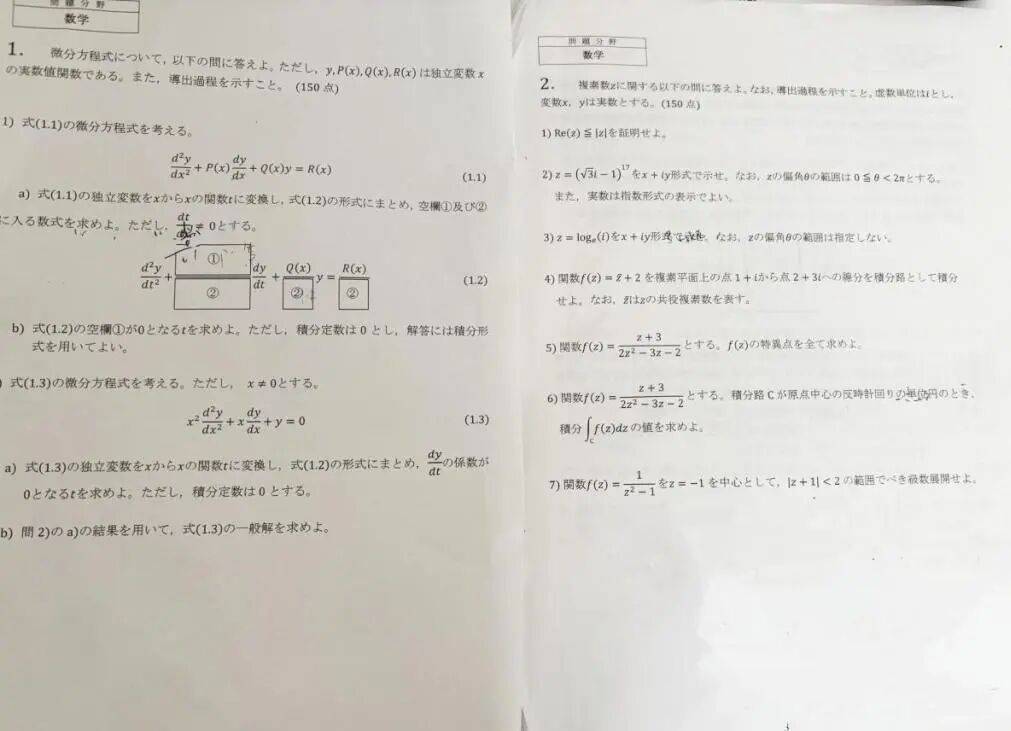 問題分野
数学
1. 微分方程式について，以下の問に答えよ。ただし，y, P(x), Q(x), R(x) は独立変数 x
の実数値関数である。また，導出過程を示すこと。 (150 点)
1) 式(1.1)の微分方程式を考える。
d²y/dx² + P(x) dy/dx + Q(x)y = R(x) (1.1)
a) 式(1.1)の独立変数をxからxの関数tに変換し，式(1.2)の形式にまとめ，空欄①及び②
に入る数式を求めよ。ただし，dt/dx ≠ 0とする。
d²y/dt² + ①/② dy/dt + Q(x)/② y = R(x)/② (1.2)
b) 式(1.2)の空欄①が0となるtを求めよ。ただし，積分定数は 0 とし，解答には積分形
式を用いてよい。
) 式(1.3)の微分方程式を考える。ただし， x ≠ 0とする。
x² d²y/dx² + x dy/dx + y = 0 (1.3)
a) 式(1.3)の独立変数をxからxの関数tに変換し，式(1.2)の形式にまとめ，dy/dtの係数が
0となるtを求めよ。ただし，積分定数は 0 とする。
b) 問 2)の a)の結果を用いて，式(1.3)の一般解を求めよ。
問題分野
数学
2. 複素数zに関する以下の問に答えよ。なお，導出過程を示すこと。虚数単位はiとし，
変数x，yは実数とする。(150 点)
1) Re(z) ≦ |z|を証明せよ。
2) z = (√3i − 1)¹⁷をx + iy形式で示せ。なお，zの偏角θの範囲は 0 ≦ θ < 2πとする。
また，実数は指数形式の表示でよい。
3) z = logₑ(i)をx + iy形式で示せ。なお，zの偏角θの範囲は指定しない。
4) 関数f(z) = z̄ + 2 を複素平面上の点 1 + iから点 2 + 3iへの線分を積分路として積分
せよ。なお，z̄はzの共役複素数を表す。
5) 関数f(z) = (z + 3)/(2z² − 3z − 2)とする。f(z)の特異点を全て求めよ。
6) 関数f(z) = (z + 3)/(2z² − 3z − 2)とする。積分路 C が原点中心の反時計回りの単位円のとき，
積分∫_C f(z)dz の値を求めよ。
7) 関数f(z) = 1/(z² − 1)をz = −1 を中心として，|z + 1| < 2 の範囲でべき級数展開せよ。